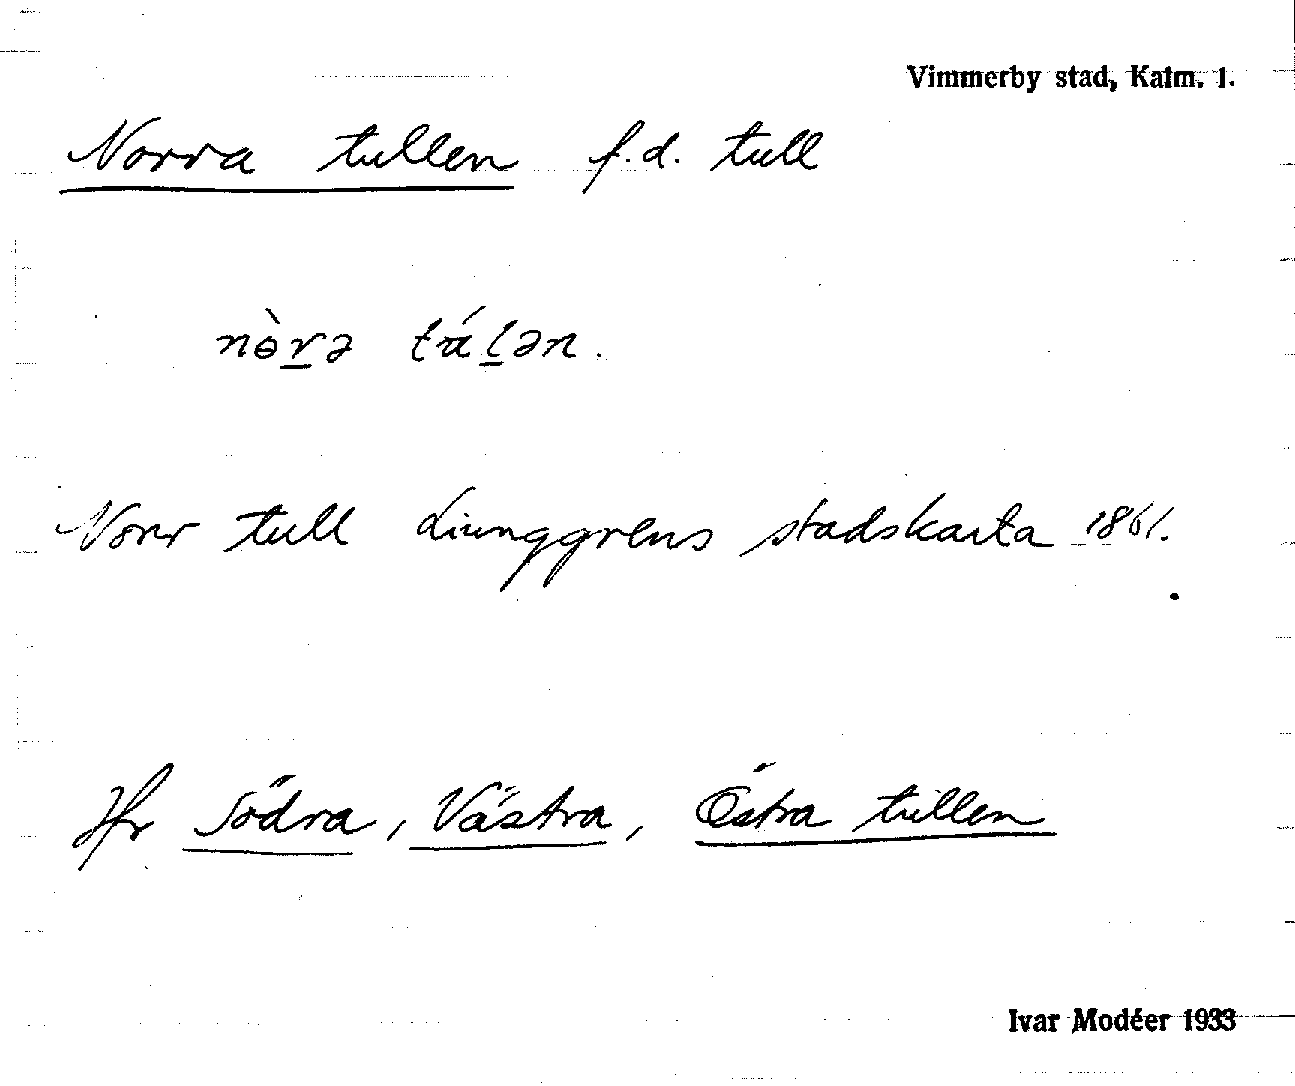 Vimmerby stad, Kalm. 1.
Norra tullen f.d. tull
nɵ̀r̲ə tú̵l̲ən.
Norr tull Liunggrens stadskarta 1861.
Jfr Södra, Västra, Östra tullen
Ivar Modéer 1933